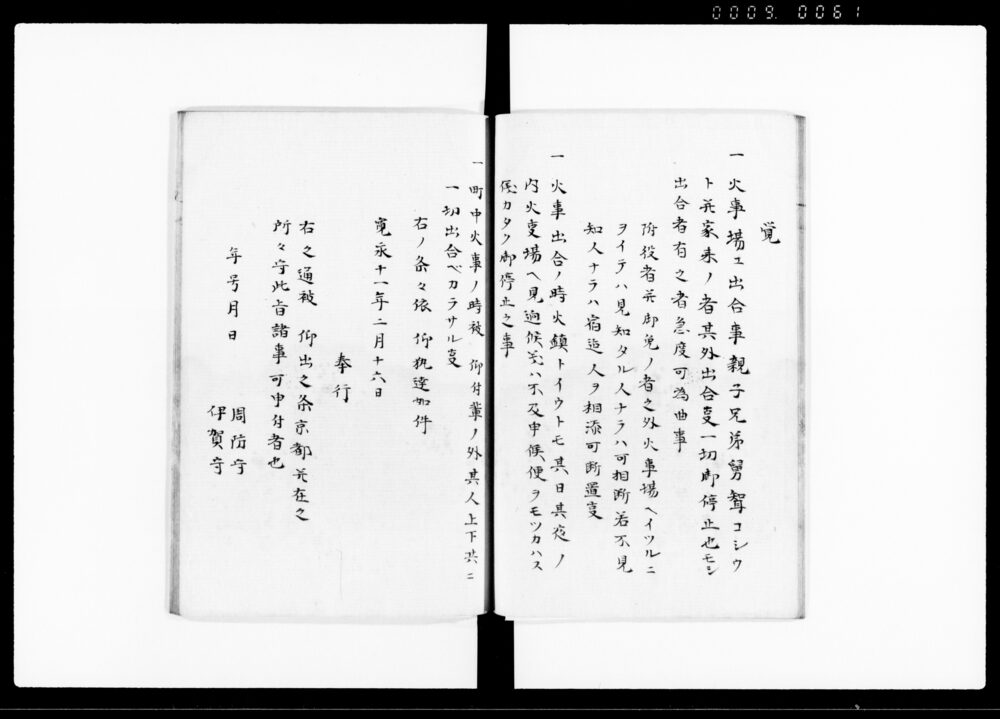 0009. 0061
覚
一 火事場エ出合事親子兄弟舅聟コシウ
ト并家来ノ者其外出合叓一切御停止也モシ
出合者有之者急度可為曲事
附役者并御免ノ者之外火事場ヘイツルニ
ヲイテハ見知タル人ナラハ可相断若不見
知人ナラハ宿迄人ヲ相添可断置叓
一 火事出合ノ時火鎮トイウトモ其日其夜ノ
内火叓場ヘ見廻候義ハ不及申候使ヲモツカハス
候カタク御停止之事
一 町中火事ノ時被 仰付輩ノ外其人上下共ニ
一切出合ベカラサル叓
右ノ条々依 仰執達如件
寛永十一年二月十六日
奉行
右之通被 仰出之条京都并在之
所々守此旨諸事可申付者也
年号月日
周防守
伊賀守